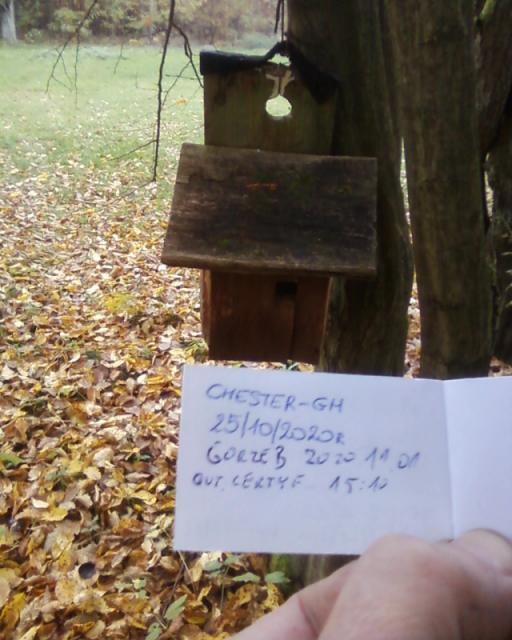 CHESTER-GH
25/10/2020R
GORZEB 2020 11 01
OUT. CERTYF 15:10